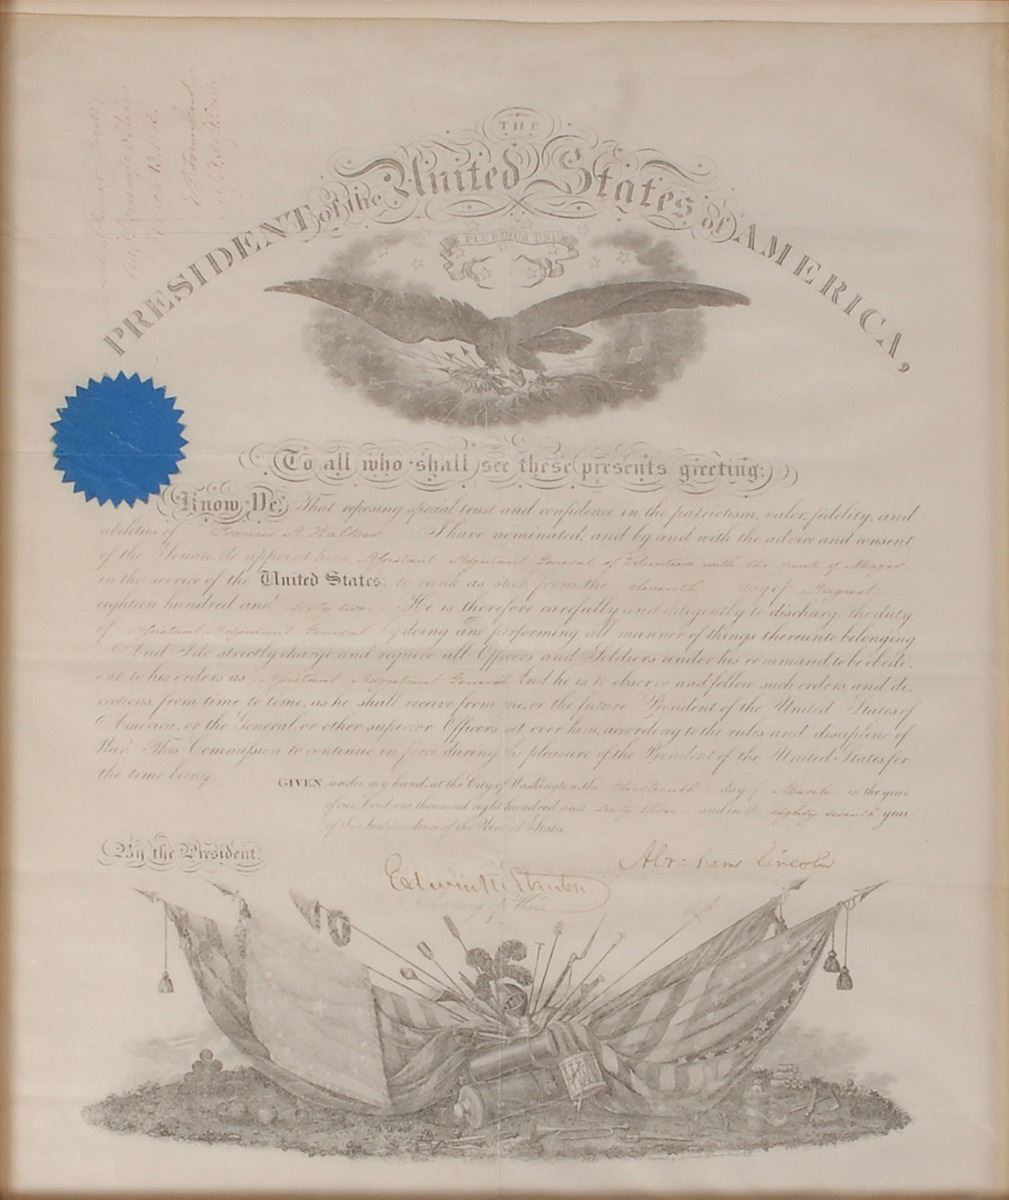 THE
PRESIDENT of the United States of AMERICA,
E PLURIBUS UNUM
To all who shall see these presents greeting:
Know Ye, That reposing special trust and confidence in the patriotism, valor, fidelity, and
abilities of Francis A. Walker I have nominated, and by and with the advice and consent
of the Senate, do appoint him Assistant Adjutant General of Volunteers with the rank of Major
in the service of the United States: to rank as such from the eleventh day of August
eighteen hundred and sixty two. He is therefore carefully and diligently to discharge the duty
of Assistant Adjutant General by doing and performing all manner of things thereunto belonging
And I do strictly charge, and require all Officers and Soldiers under his command to be obedi-
ent to his orders as Assistant Adjutant General And he is to observe and follow such orders, and di-
rections, from time to time, as he shall receive, from me, or the future President of the United States of
America, or the General, or other superior Officers set over him, according to the rules and discipline of
War. This Commission to continue in force during the pleasure of the President of the United States, for
the time being.
GIVEN under my hand, at the City of Washington, this thirteenth day of March in the year
of our Lord, one thousand eight hundred and sixty three and in the eighty seventh year
of the Independence of the United States.
By the President,
Abraham Lincoln
Edwin M Stanton
Secretary of War
Adjutant General's Office
March 13. 1863.
E D Townsend